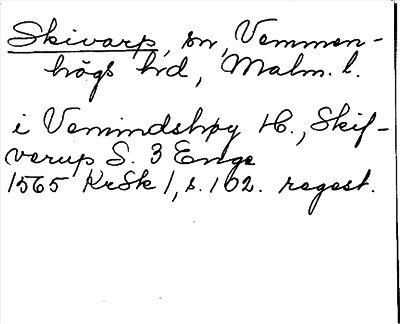 Skivarp, sn, Vemmen-
högs hd, Malm. l.
i Vemindshøy H., Skif-
verup S. 3 Enge
1565 KrSk 1, s. 102. regest.